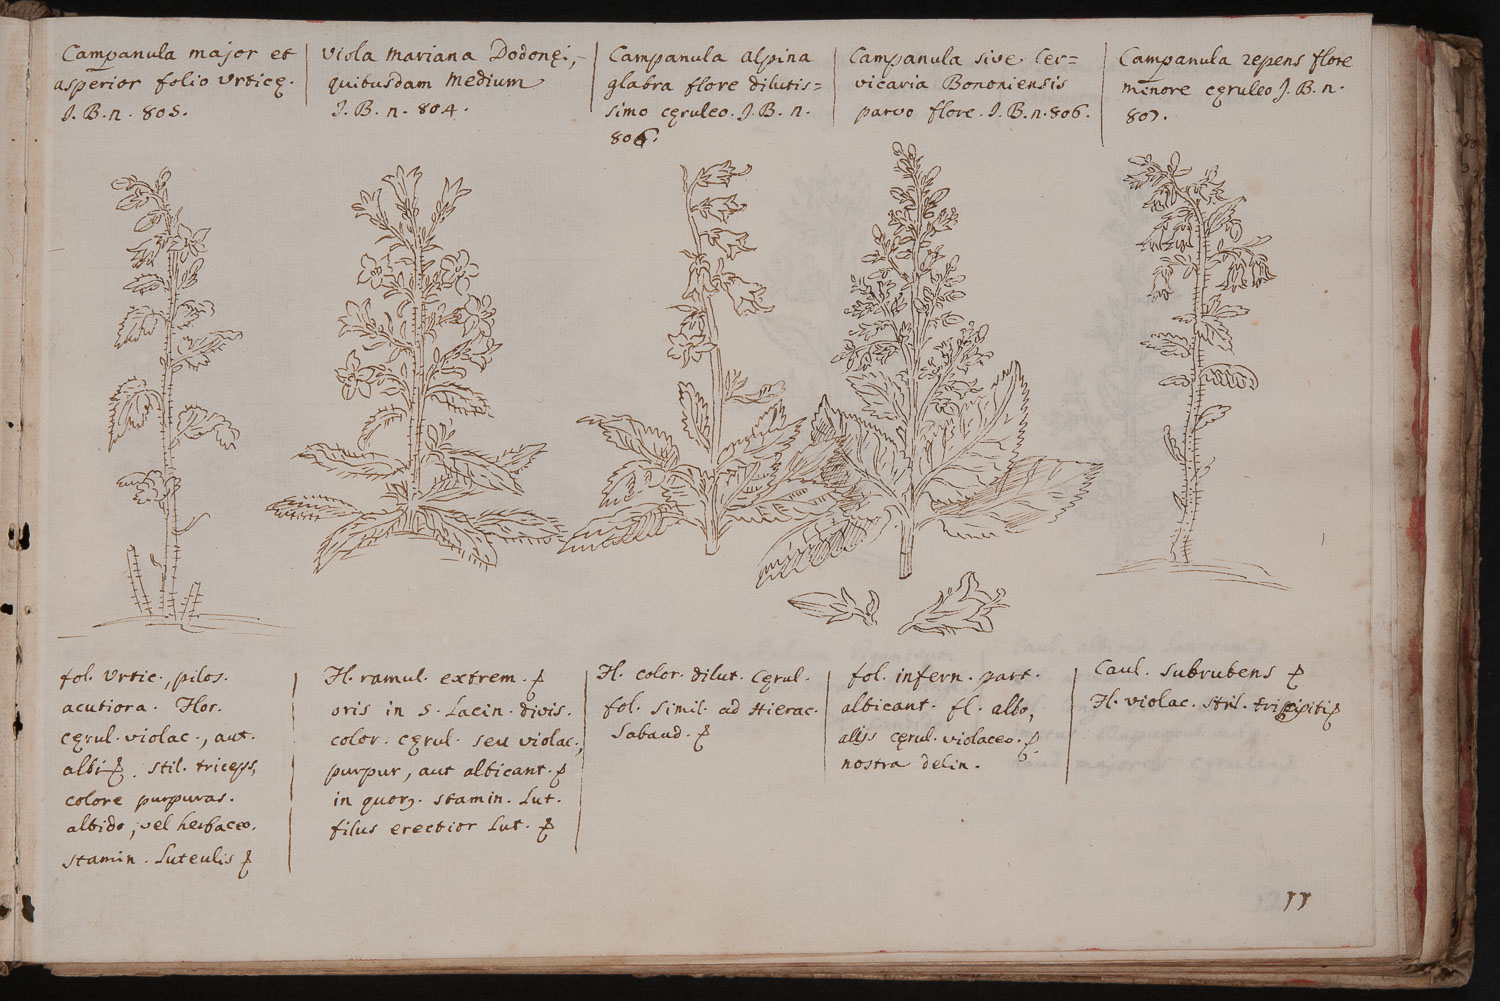 Campanula major et
asperior folio Urticę.
J. B. n. 805.
Viola Mariana Dodonęi,
quibusdam Medium
J. B. n. 804.
Campanula alpina
glabra flore dilutis=
simo cęruleo. J. B. n.
806.
Campanula sive Cer=
vicaria Bononiensis
parvo flore. J. B. n. 806.
Campanula repens flore
minore cęruleo J. B. n.
807.
fol. Urtic., pilos.
acutiora. Flor.
cęrul. violac., aut.
albi. stil. triceps,
colore purpuras.
albido, vel herbaceo.
stamin. Luteulis
Fl. ramul. extrem.
oris in 5. Lacin. divis.
color. cęrul. seu violac.,
purpur, aut albicant.
in quor. stamin. Lut.
filus erectior Lut.
Fl. color. dilut. Cęrul.
fol. simil. ad Hierac.
Sabaud.
fol. infern. part.
albicant. fl. albo,
alijs cęrul. violaceo.
nostra delin.
Caul. subrubens
Fl. violac. stil. tripiti
11